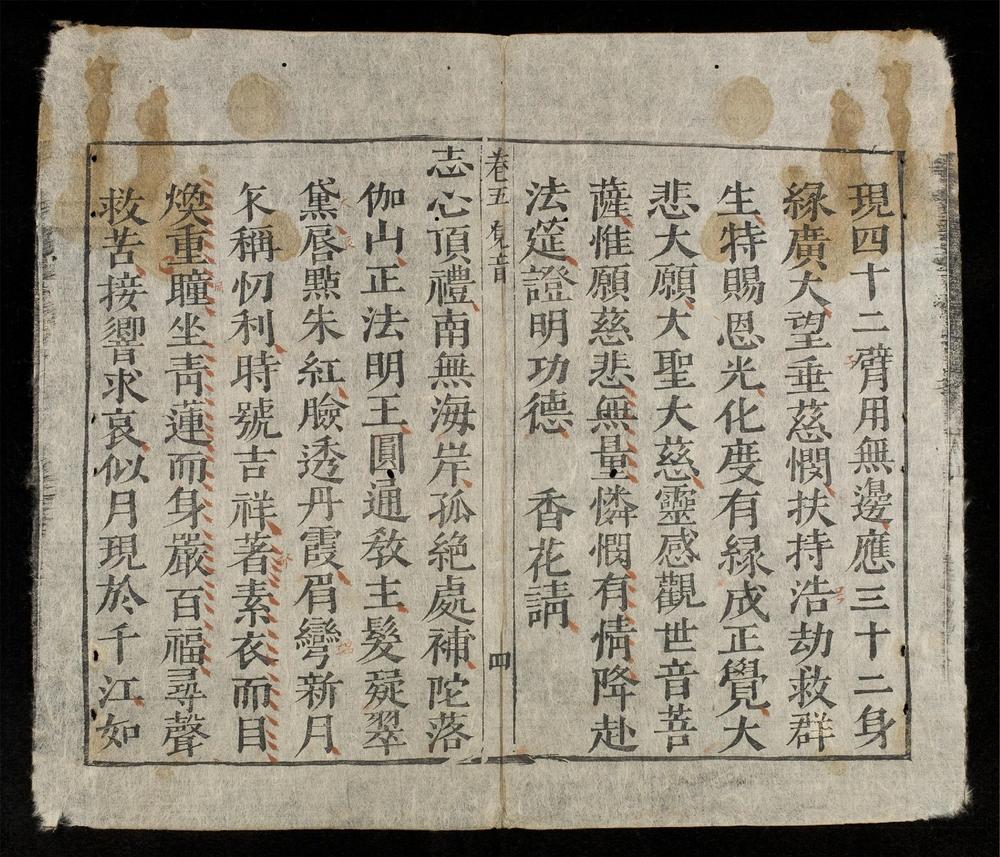 現四十二臂用無邊應三十二身
緣廣大望垂慈憫扶持浩劫救群
生特賜恩光化度有緣成正覺大
悲大願大聖大慈靈感觀世音菩
薩惟願慈悲無量憐憫有情降赴
法筵證明功德 香花請
卷五 覔音 四
志心頂禮南無海岸孤絶處補陀落
伽山正法明王圓通教主髮㠜翠
黛唇點朱紅臉透丹霞眉彎新月
乆稱忉利時號吉祥著素衣而目
煥重瞳坐青蓮而身嚴百福尋聲
救苦接響求哀似月現於千江如